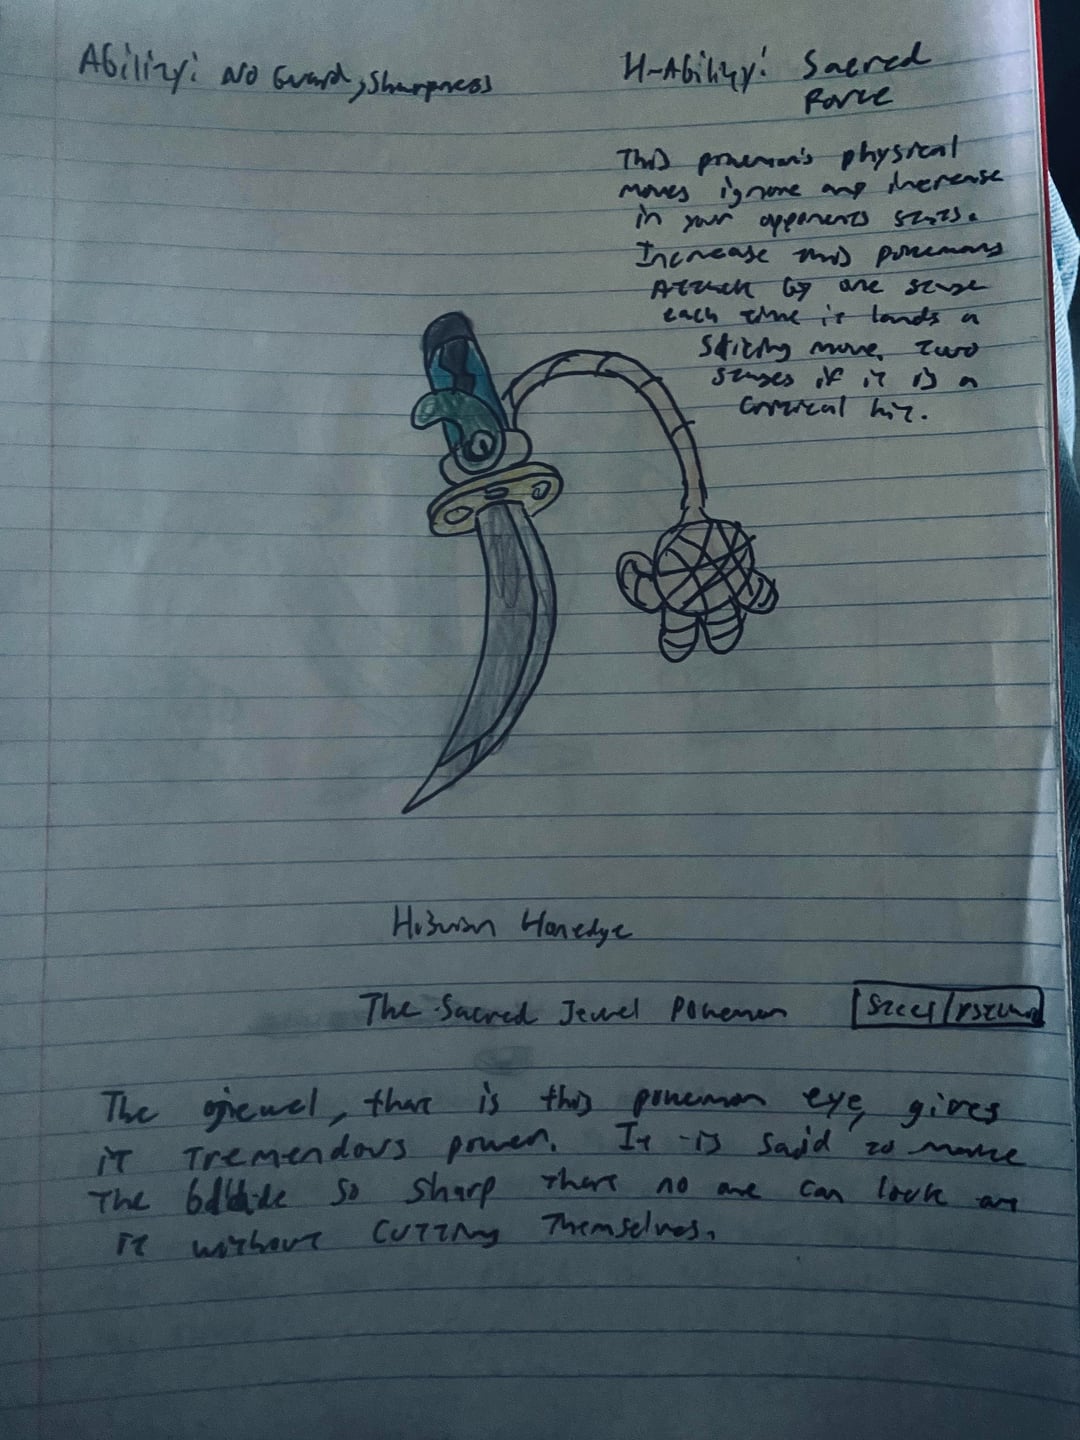 Ability: No Guard, Sharpness
H-Ability: Sacred
Force
This pokemon's physical
moves ignore any increase
in your opponents stats.
Increase this pokemons
Attack by one stage
each time it lands a
slicing move. Two
stages if it is a
critical hit.
Honedge
The Sacred Jewel Pokemon
Steel/Psychic
The jewel, that is this pokemon eye, gives
it tremendous power. It is said to make
the blade so sharp that no one can look at
it without cutting themselves.